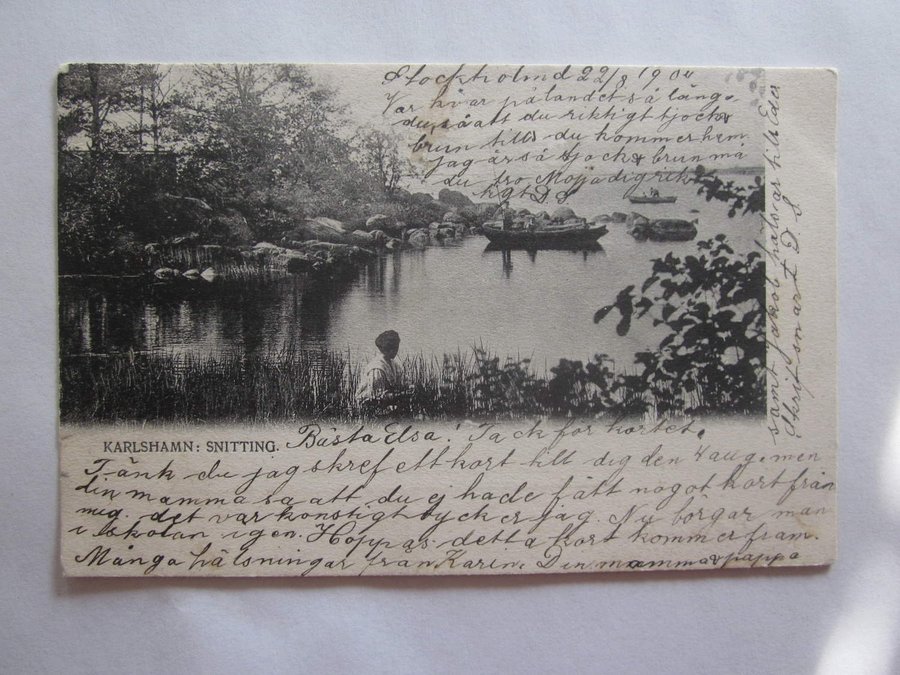 Stockholmd 22/8 1904
Var kvar på landet så länge
du så att du riktigt tjock &
brun tills du kommer hem
jag är så tjock & brun må
du tro Mojja dig rik
tigt D S
KARLSHAMN: SNITTING.
Bästa Elsa! Tack för kortet.
Tänk du jag skref ett kort till dig den 4 aug. men
din mamma sa att du ej hade fått något kort från
mig. det var konstigt tycker jag. Nu börgar man
i skolan igen. Hoppas detta kort kommer fram.
Många hälsningar från Karin. Din mamma & pappa
samt jakob hälsar till Eder
Skrif snart D. S.